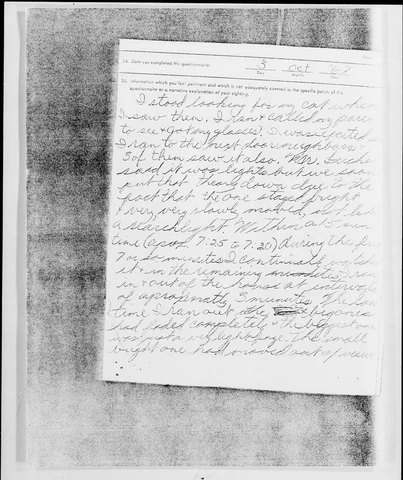 34. Date you completed this questionnaire: 3 Oct 67
Day Month Year
35. Information which you feel pertinent and which is not adequately covered in the specific points of the
questionnaire or a narrative explanation of your sighting.
I stood looking for my cat when
I saw them. I ran & called my paren
to see & got my glasses. I was excited
I ran to the next door neighbors &
3 of them saw it also. Mr.
said it was lights but we soon
put that theory down due to the
fact that the one stayed bright
& very very slowly moved, not like
a searchlight. Within a 15 min
time (apox. 7:25 to 7:20) during the
7 or so minutes I continually watched
it & in the remaining minutes I ran
in & out of the house at intervals
of aproxmatly 3 minutes. The last
time I ran out the big ones
had faded completely & the biggest one
was just a very light haze. The small
bright one had moved out of view